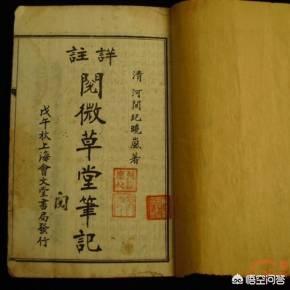 詳註
清 河間紀曉嵐著
閱微草堂筆記
戊午秋上海會文堂書局發行
悟空问答